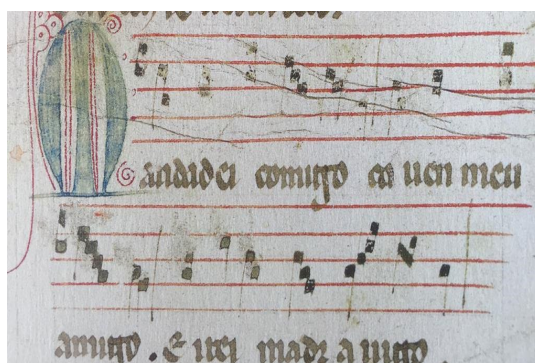 Mandad ei comigo ca uen meu
amigo. E irei madr a uigo